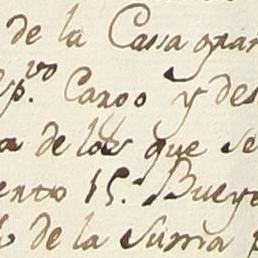 de la Cassa gran
p.vo Cargo y des
a de los que se
ento 15. Bueye
o de la suma p